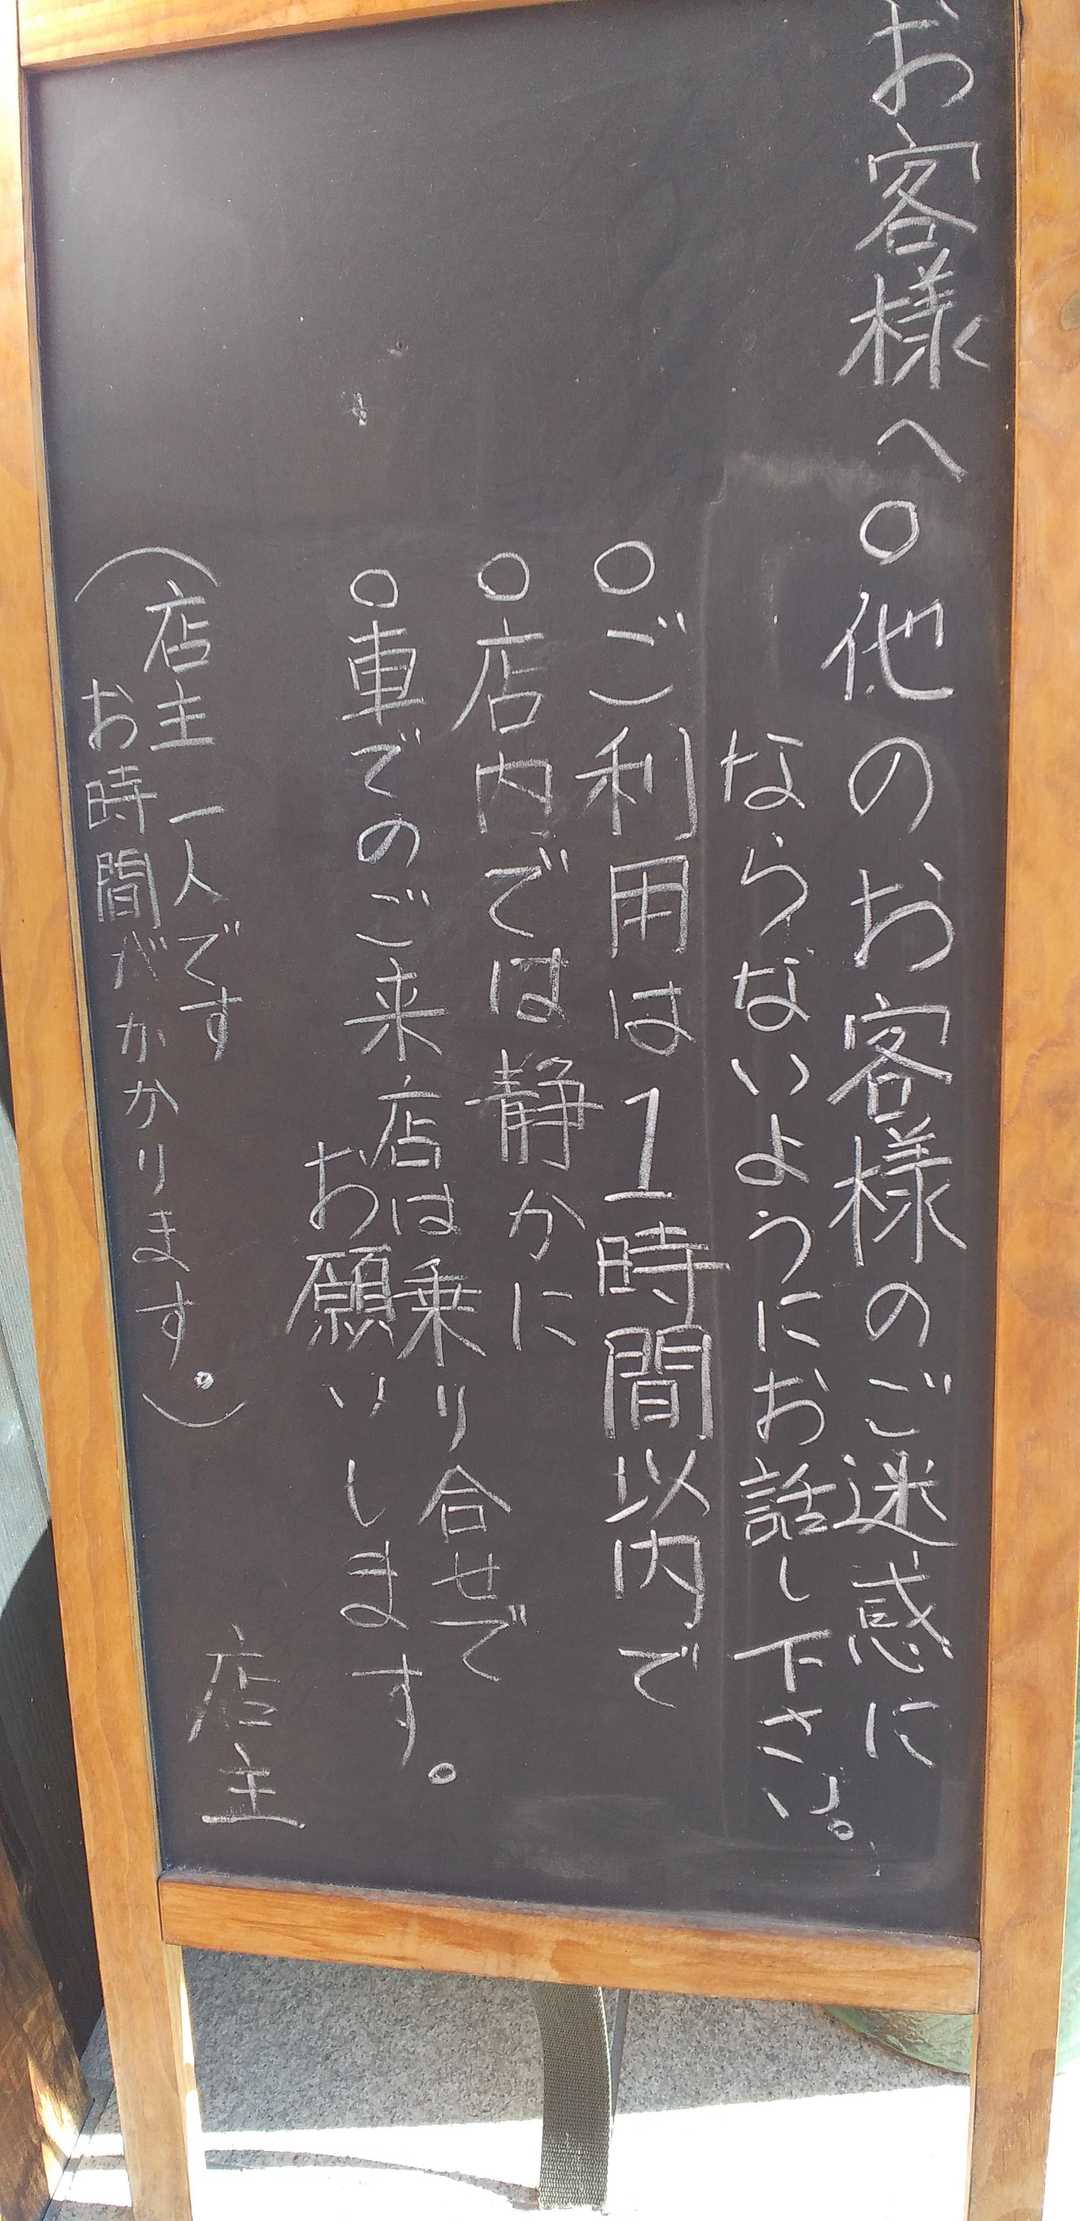 お客様へ○他のお客様のご迷惑に
ならないようにお話し下さい。
○ご利用は1時間以内で
○店内では静かに
○車でのご来店は乗り合せで
お願いします。
(店主一人です
お時間がかかります。)
店主